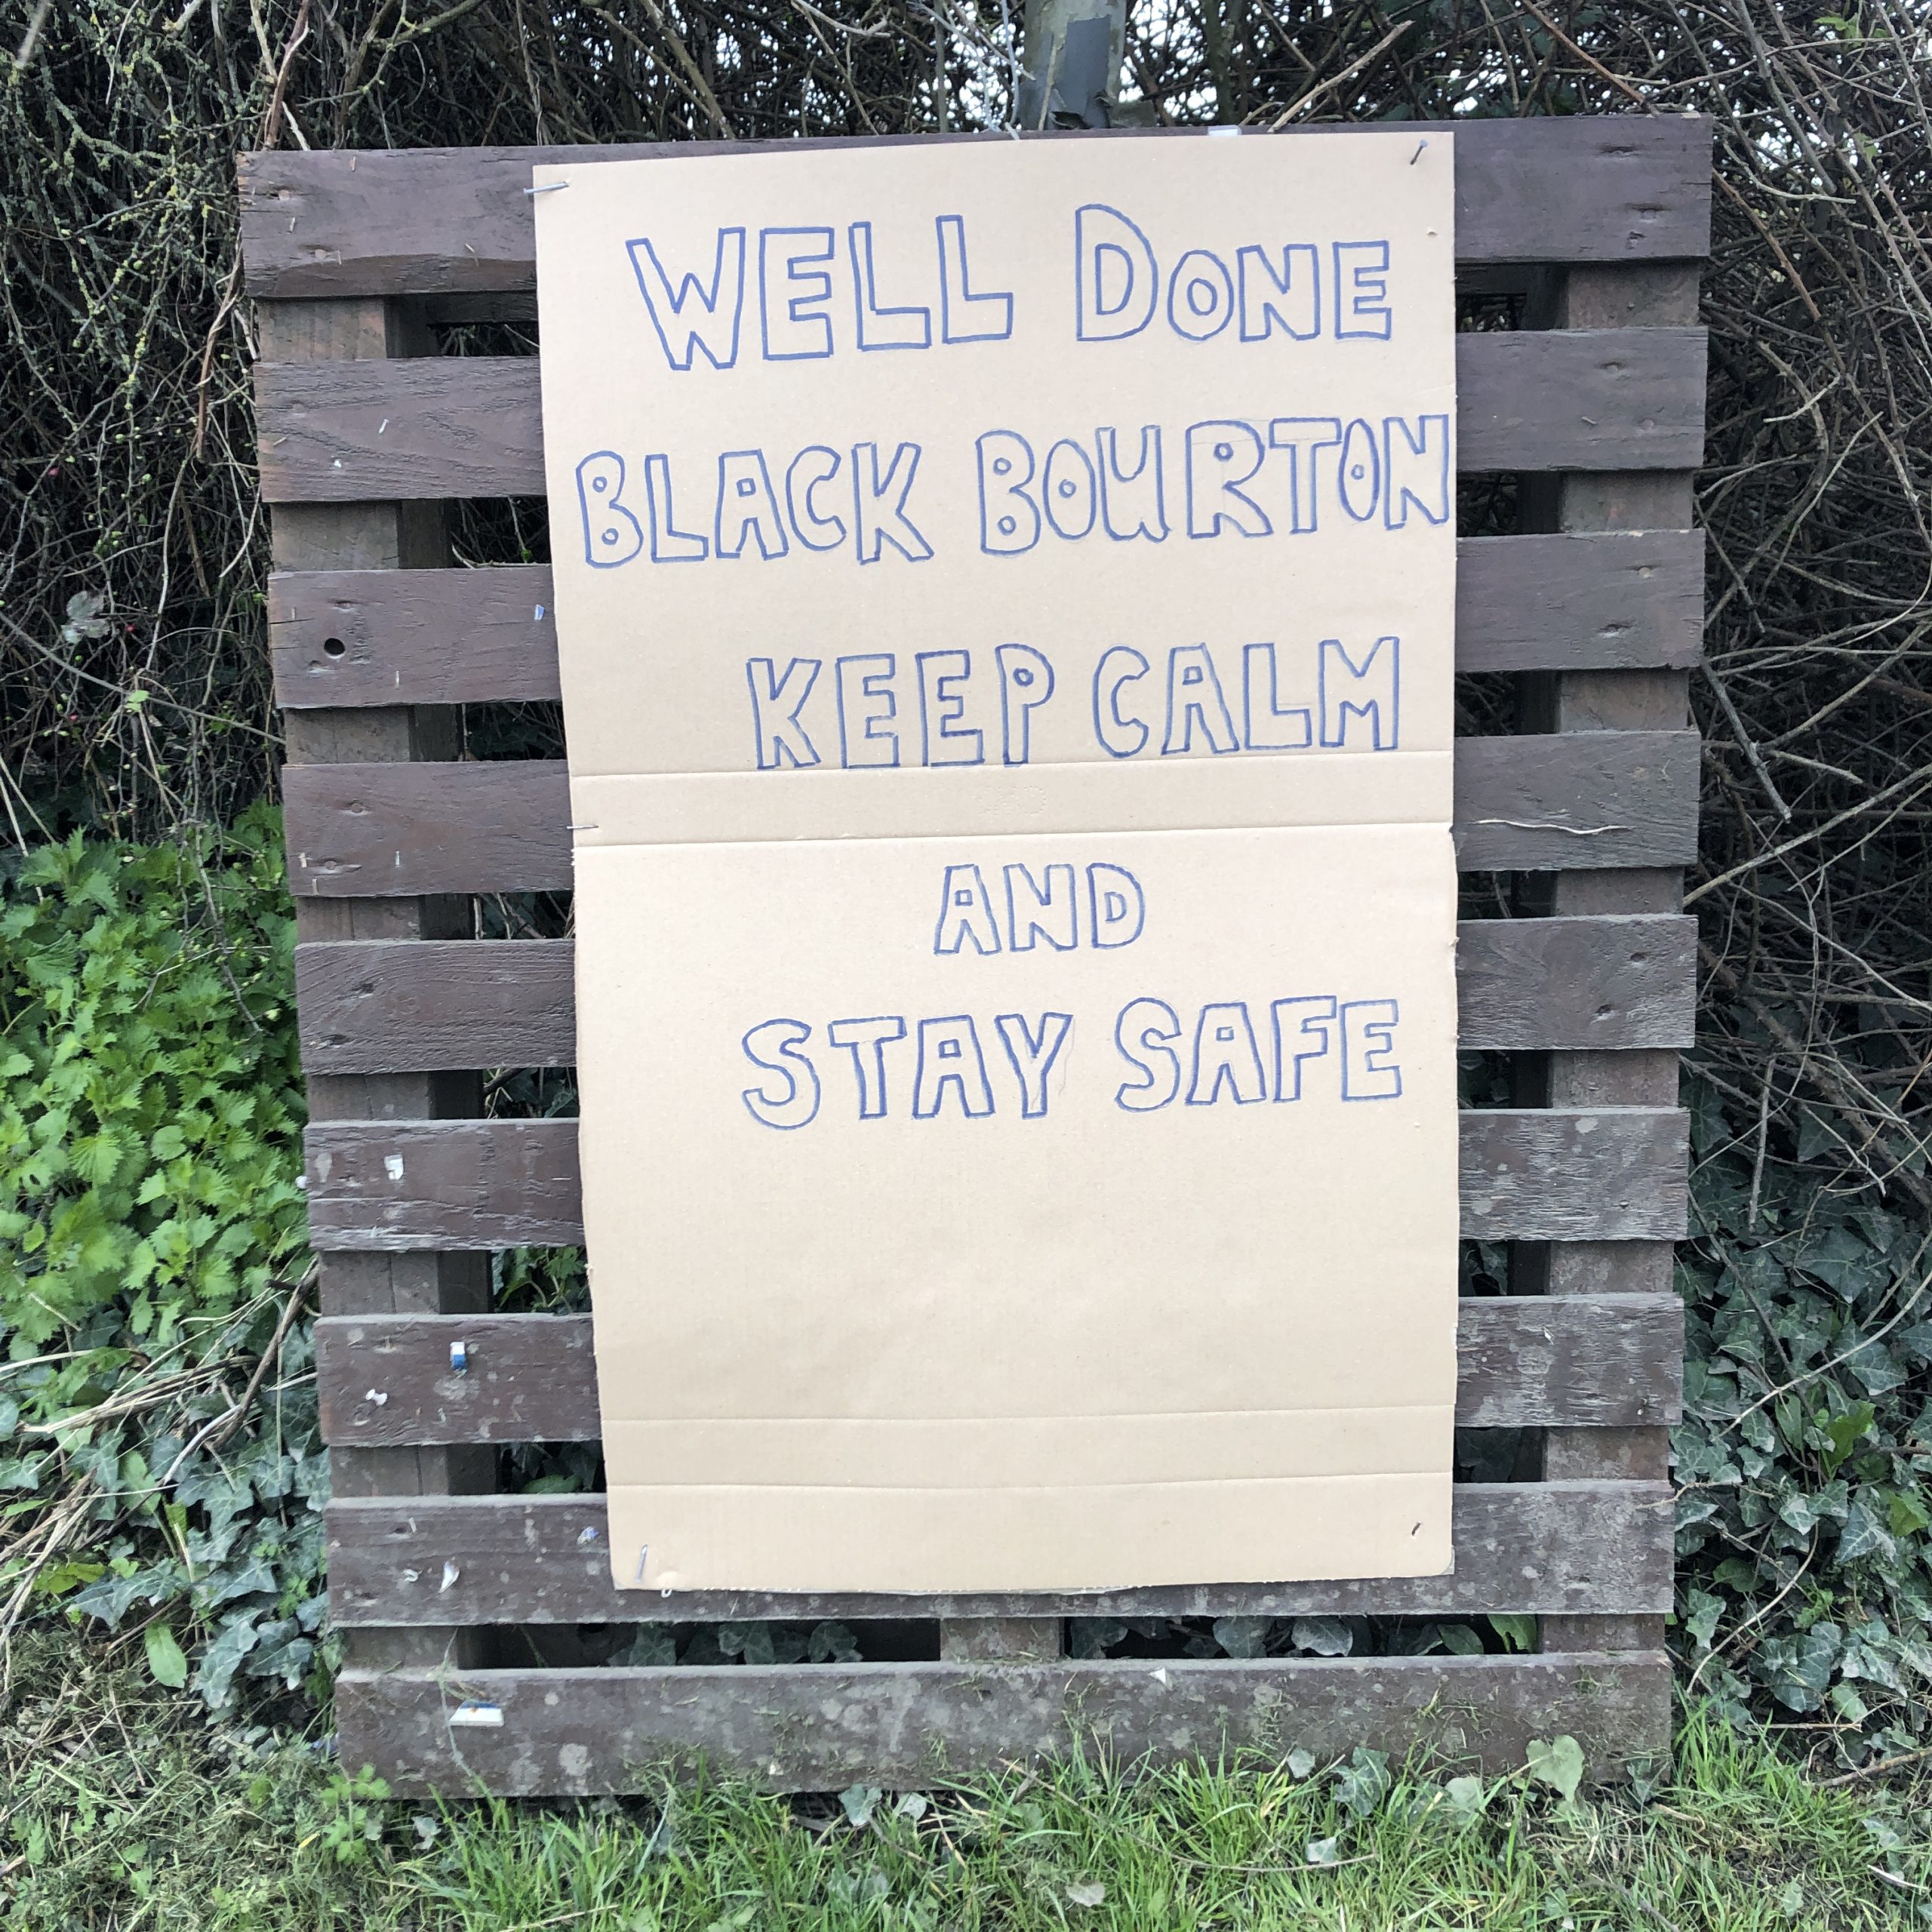 WELL DONE
BLACK BOURTON
KEEP CALM
AND
STAY SAFE